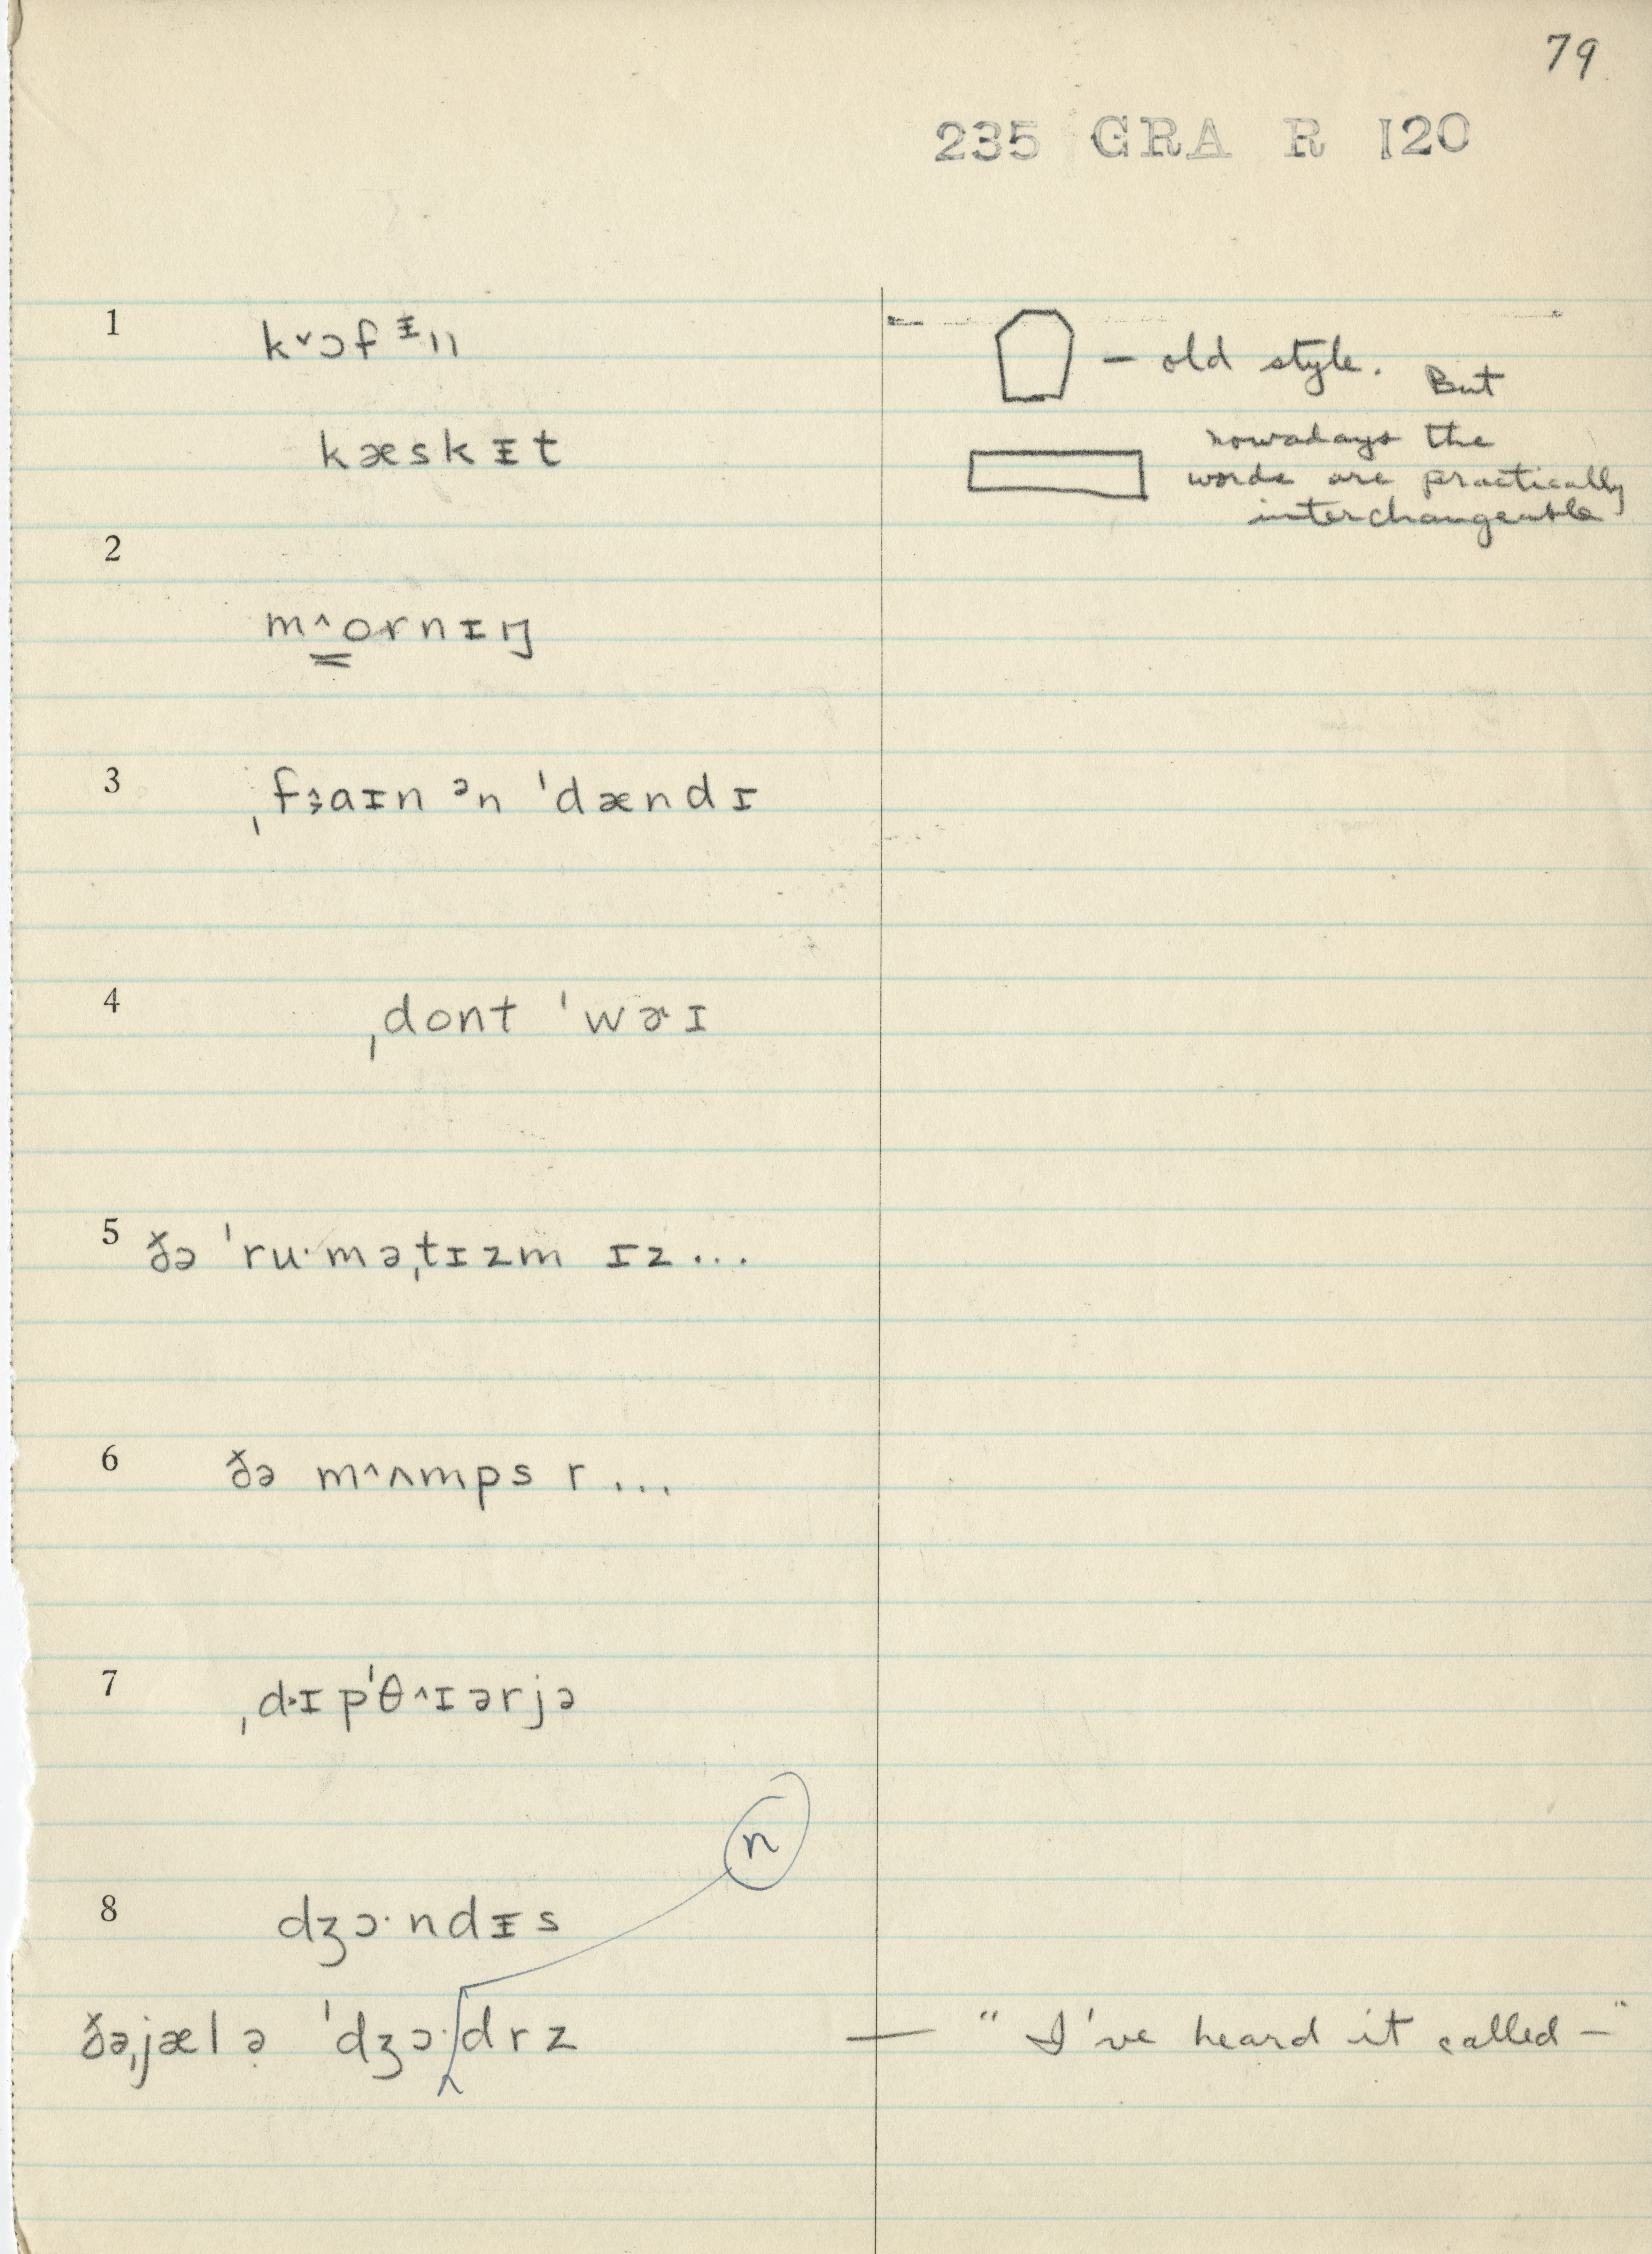 79
235 GRA R 120
1 k˅ɔf ᵻn
— old style. But
kæskᵻt
nowadays the
words are practically
interchangeable
2
m^ornɪŋ
3 ˌfaɪn ᵊn ˈdændɪ
4 ˌdont ˈwɚɪ
5 ðə ˈru·məˌtɪzm ɪz...
6 ðə m^ʌmps r...
7 ˌdɪpˈθ^ɪərjə
n
8 dʒɔ·ndᵻs
ðəˌjælə ˈdʒɔ·drz — "I've heard it called —"